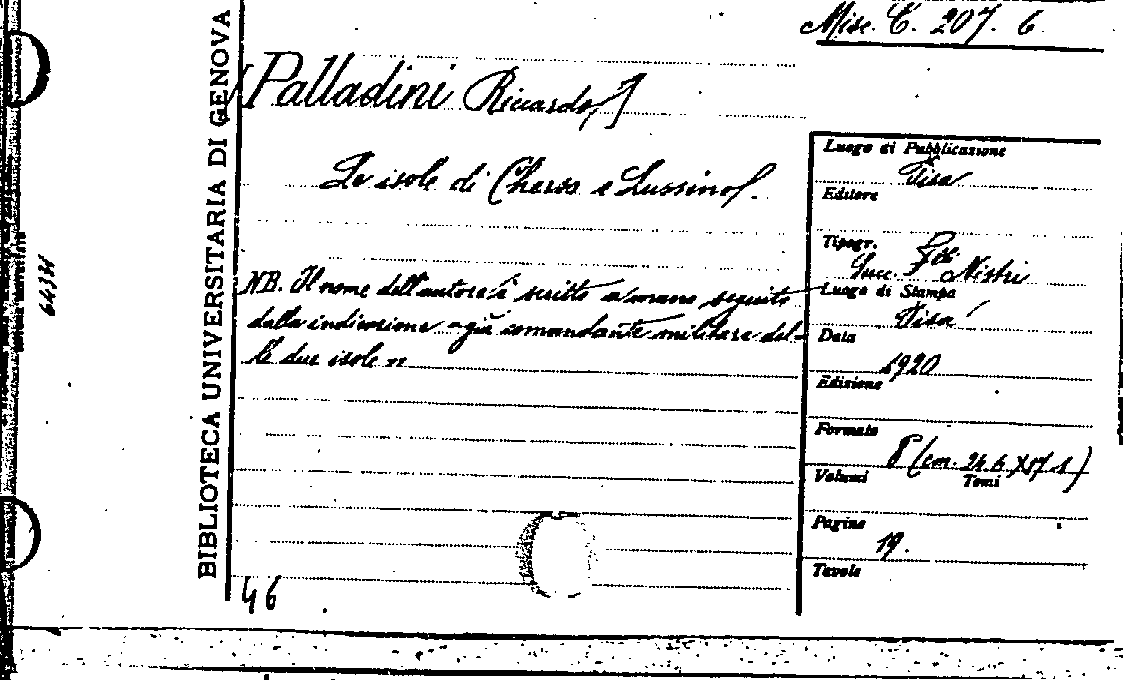 Misc. C. 207. 6
[Palladini Riccardo]
Le isole di Cherso e Lussino.
NB. Il nome dell'autore è scritto a mano seguito
dalla indicazione "già comandante militare del-
le due isole"
46
BIBLIOTECA UNIVERSITARIA DI GENOVA
64331
Luogo di Pubblicazione
Pisa
Editore
Tipogr.
Succ. Nistri
Luogo di Stampa
Pisa
Data
1920
Edizione
Formato
8° (cm. 24.6 x 17.1)
Volumi Tomi
Pagine
19.
Tavole